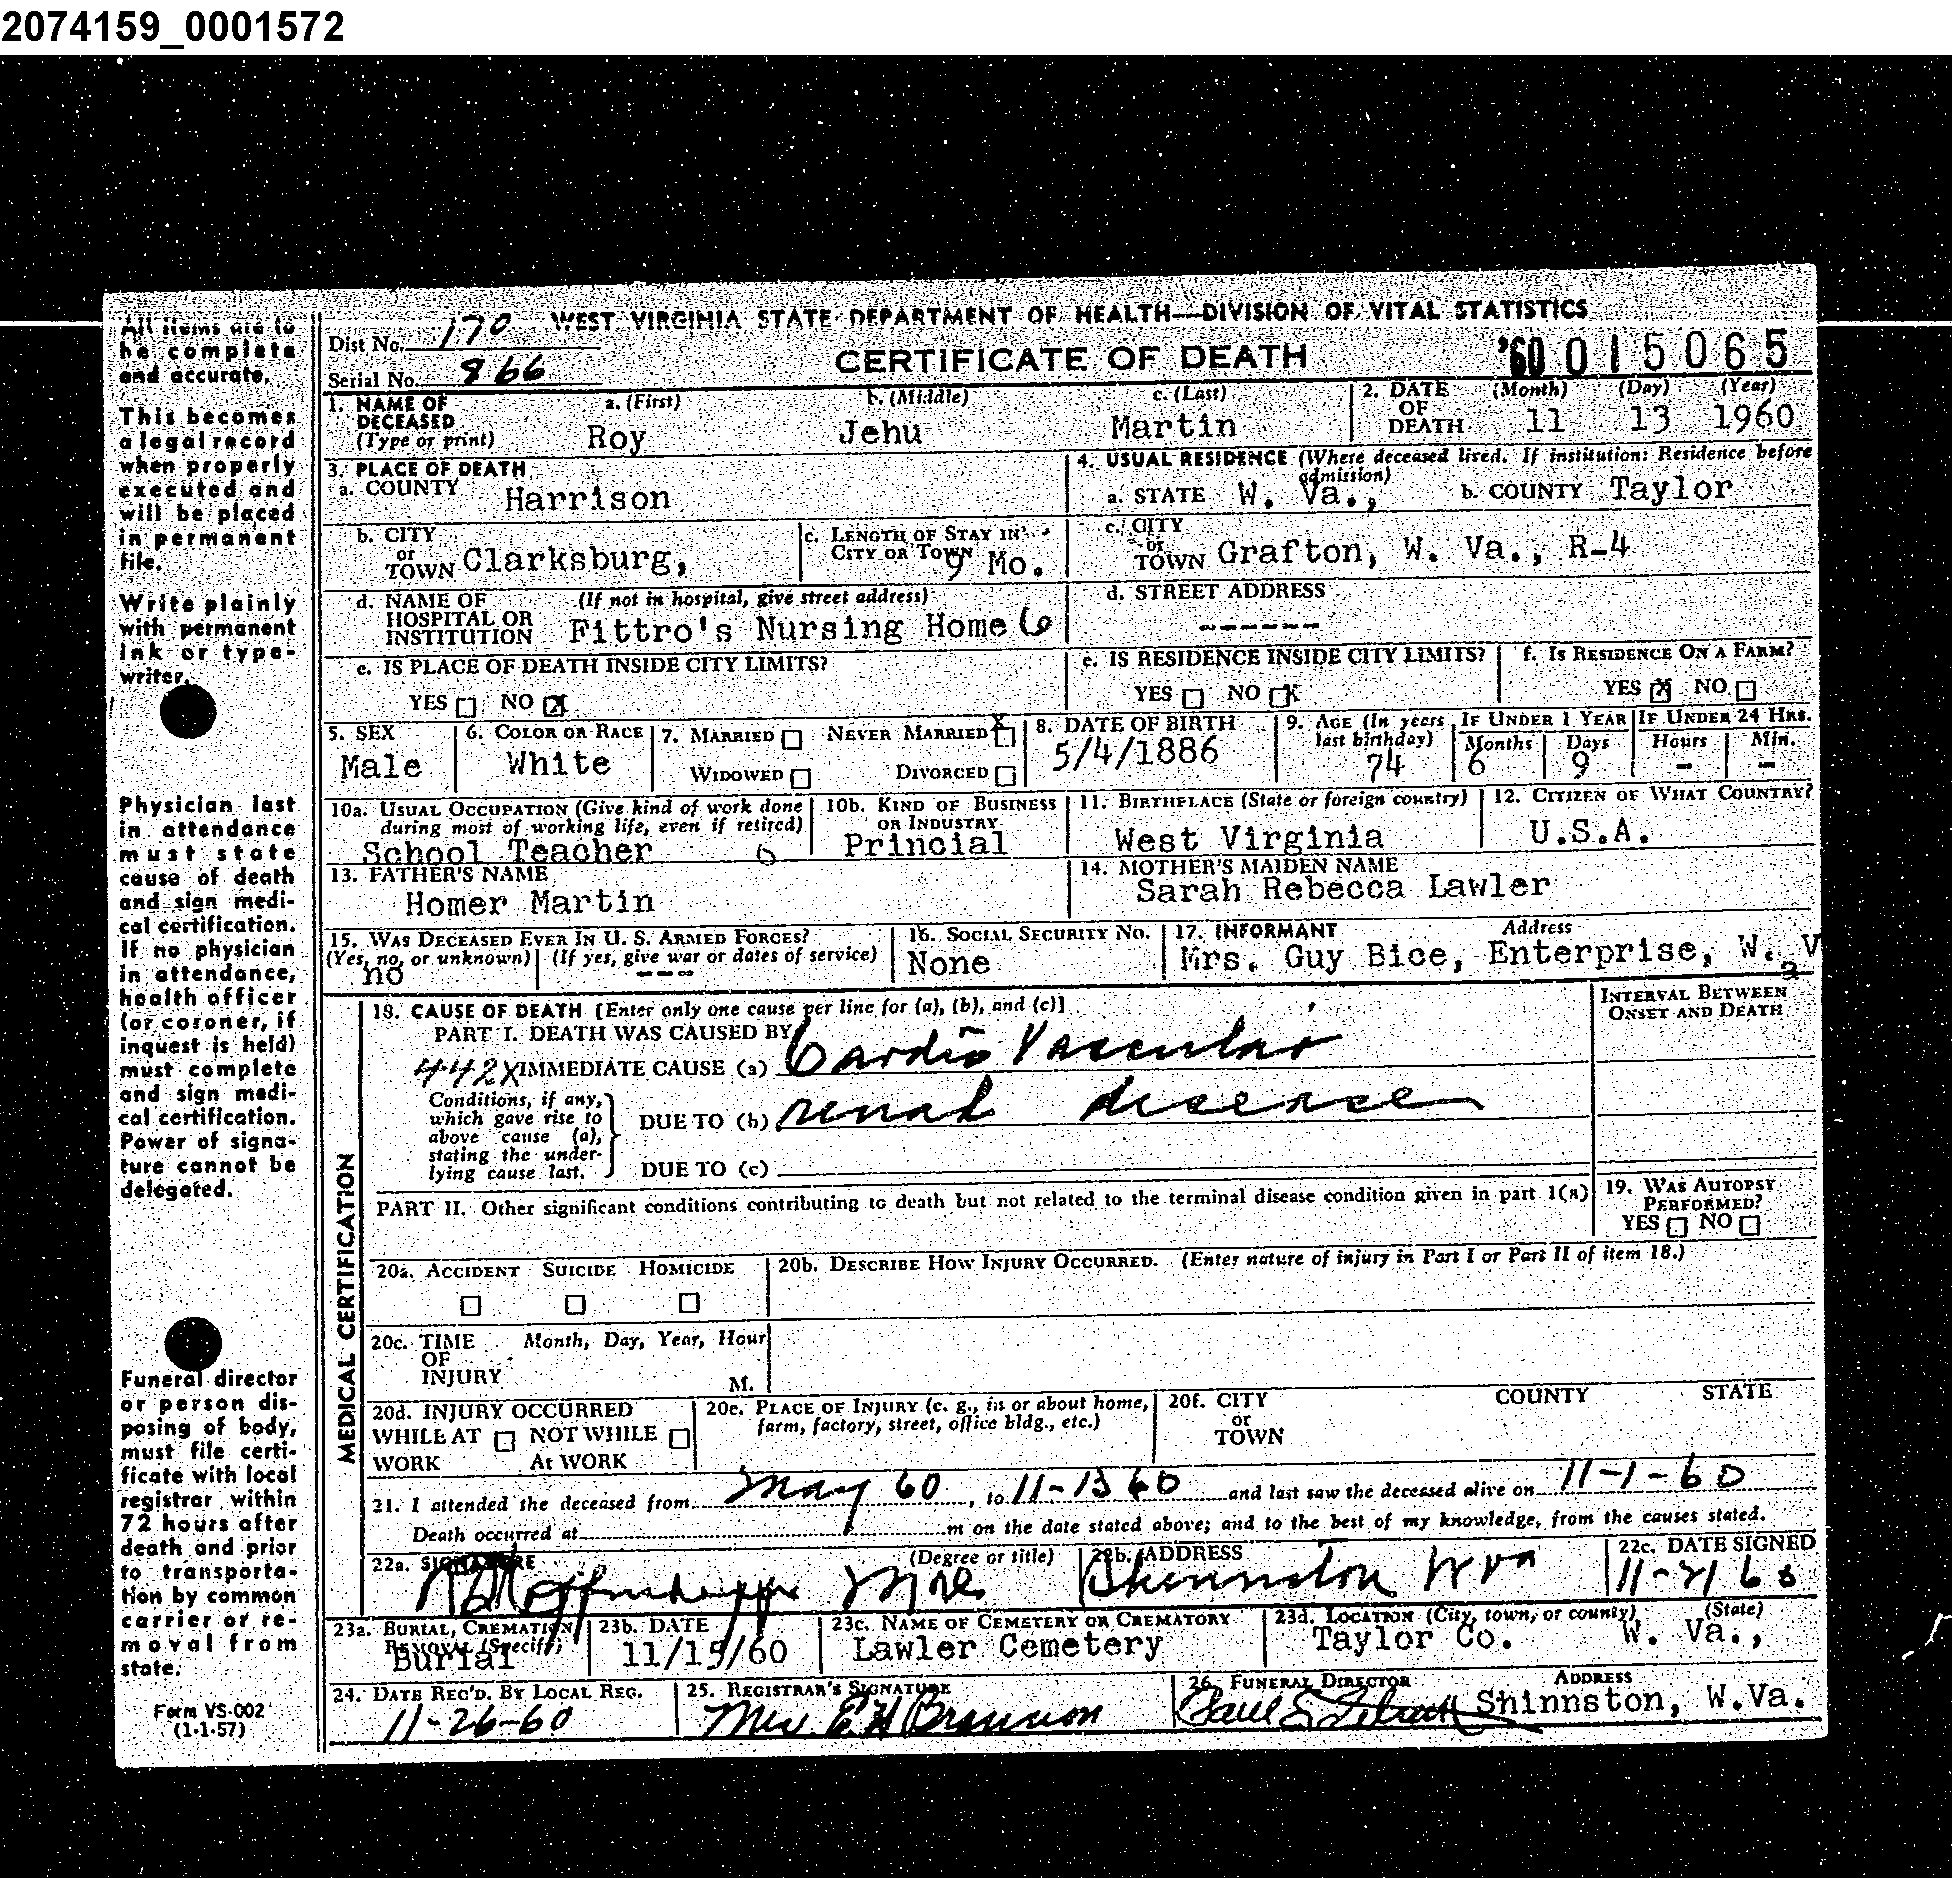 2074159_0001572
All items are to
be complete
and accurate.
This becomes
a legal record
when properly
executed and
will be placed
in permanent
file.
Write plainly
with permanent
ink or type-
writer.
Physician last
in attendance
must state
cause of death
and sign medi-
cal certification.
If no physician
in attendance,
health officer
(or coroner, if
inquest is held)
must complete
and sign medi-
cal certification.
Power of signa-
ture cannot be
delegated.
Funeral director
or person dis-
posing of body,
must file certi-
ficate with local
registrar within
72 hours after
death and prior
to transporta-
tion by common
carrier or re-
moval from
state.
Form VS-002
(1-1-57)
WEST VIRGINIA STATE DEPARTMENT OF HEALTH—DIVISION OF VITAL STATISTICS
Dist No. 170
Serial No. 866
CERTIFICATE OF DEATH
'60 015065
1. NAME OF DECEASED (Type or print) a. (First) Roy b. (Middle) Jehu c. (Last) Martin
2. DATE OF DEATH (Month) 11 (Day) 13 (Year) 1960
3. PLACE OF DEATH
a. COUNTY Harrison
4. USUAL RESIDENCE (Where deceased lived. If institution: Residence before admission)
a. STATE W. Va., b. COUNTY Taylor
b. CITY or TOWN Clarksburg,
c. LENGTH OF STAY IN CITY OR TOWN 9 Mo.
c. CITY or TOWN Grafton, W. Va., R-4
d. NAME OF HOSPITAL OR INSTITUTION (If not in hospital, give street address) Fittro's Nursing Home 6
d. STREET ADDRESS ------
e. IS PLACE OF DEATH INSIDE CITY LIMITS?
YES NO X
e. IS RESIDENCE INSIDE CITY LIMITS?
YES NO X
f. IS RESIDENCE ON A FARM?
YES X NO
5. SEX Male
6. COLOR OR RACE White
7. MARRIED NEVER MARRIED X
WIDOWED DIVORCED
8. DATE OF BIRTH 5/4/1886
9. AGE (In years last birthday) 74
IF UNDER 1 YEAR Months 6 Days 9
IF UNDER 24 HRS. Hours - Min. -
10a. USUAL OCCUPATION (Give kind of work done during most of working life, even if retired) School Teacher
10b. KIND OF BUSINESS OR INDUSTRY Princial
11. BIRTHPLACE (State or foreign country) West Virginia
12. CITIZEN OF WHAT COUNTRY? U.S.A.
13. FATHER'S NAME Homer Martin
14. MOTHER'S MAIDEN NAME Sarah Rebecca Lawler
15. WAS DECEASED EVER IN U. S. ARMED FORCES?
(Yes, no, or unknown) no (If yes, give war or dates of service) ---
16. SOCIAL SECURITY NO. None
17. INFORMANT Address
Mrs. Guy Bice, Enterprise, W. Va
MEDICAL CERTIFICATION
18. CAUSE OF DEATH [Enter only one cause per line for (a), (b), and (c)]
INTERVAL BETWEEN ONSET AND DEATH
PART I. DEATH WAS CAUSED BY
442X IMMEDIATE CAUSE (a) Cardio Vascular
Conditions, if any, which gave rise to above cause (a), stating the under-lying cause last.
DUE TO (b) renal disease
DUE TO (c)
PART II. Other significant conditions contributing to death but not related to the terminal disease condition given in part I(a)
19. WAS AUTOPSY PERFORMED?
YES NO
20a. ACCIDENT SUICIDE HOMICIDE
20b. DESCRIBE HOW INJURY OCCURRED. (Enter nature of injury in Part I or Part II of item 18.)
20c. TIME OF INJURY Month, Day, Year, Hour
M.
20d. INJURY OCCURRED
WHILE AT WORK NOT WHILE At WORK
20e. PLACE OF INJURY (e. g., in or about home, farm, factory, street, office bldg., etc.)
20f. CITY or TOWN COUNTY STATE
21. I attended the deceased from May 60, to 11-13 60 and last saw the deceased alive on 11-1-60
Death occurred at m on the date stated above; and to the best of my knowledge, from the causes stated.
22a. SIGNATURE (Degree or title)
22b. ADDRESS Shinnston W Va
22c. DATE SIGNED 11-21 60
23a. BURIAL, CREMATION, REMOVAL (Specify) Burial
23b. DATE 11/15/60
23c. NAME OF CEMETERY OR CREMATORY Lawler Cemetery
23d. LOCATION (City, town, or county) (State)
Taylor Co. W. Va.,
24. DATE REC'D. BY LOCAL REG. 11-26-60
25. REGISTRAR'S SIGNATURE Mrs E H Brannon
26. FUNERAL DIRECTOR ADDRESS
Shinnston, W.Va.